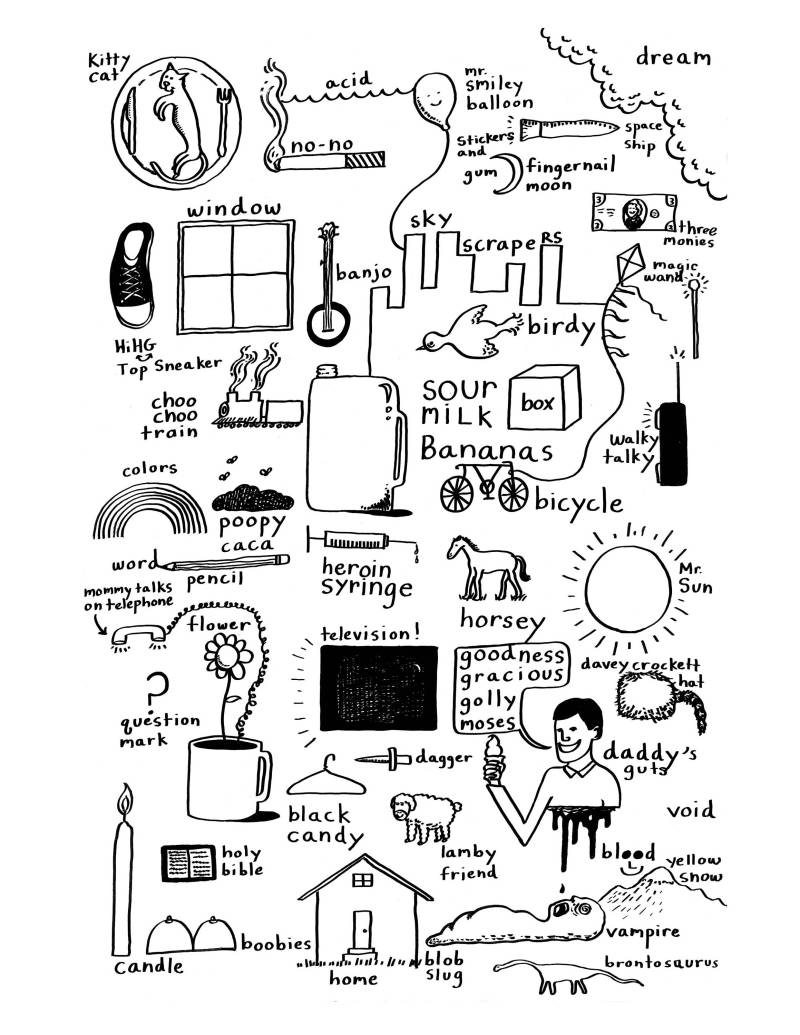 Kitty
cat
acid
mr.
smiley
balloon
dream
no-no
Stickers
and
gum
space
ship
fingernail
moon
3
3
3
three
monies
window
sky
scrapeRS
banjo
magic
wand
HiHG
Top Sneaker
birdy
choo
choo
train
SOUR
MiLK
box
Bananas
walky
talky
colors
poopy
caca
bicycle
word
pencil
heroin
syringe
Mr.
Sun
mommy talks
on telephone
flower
horsey
television!
goodness
gracious
golly
moses
davey crockett
hat
?
question
mark
dagger
daddy's
guts
black
candy
void
holy
bible
lamby
friend
blood
yellow
snow
candle
boobies
home
blob
slug
vampire
brontosaurus